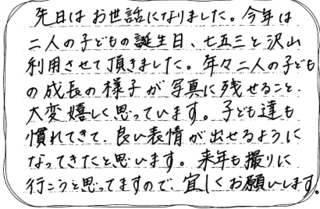 先日はお世話になりました。今年は
二人の子どもの誕生日、七五三と沢山
利用させて頂きました。年々二人の子ども
の成長の様子が写真に残せること、
大変嬉しく思っています。子ども達も
慣れてきて、良い表情が出せるように
なってきたと思います。来年も撮りに
行こうと思ってますので、宜しくお願いします。